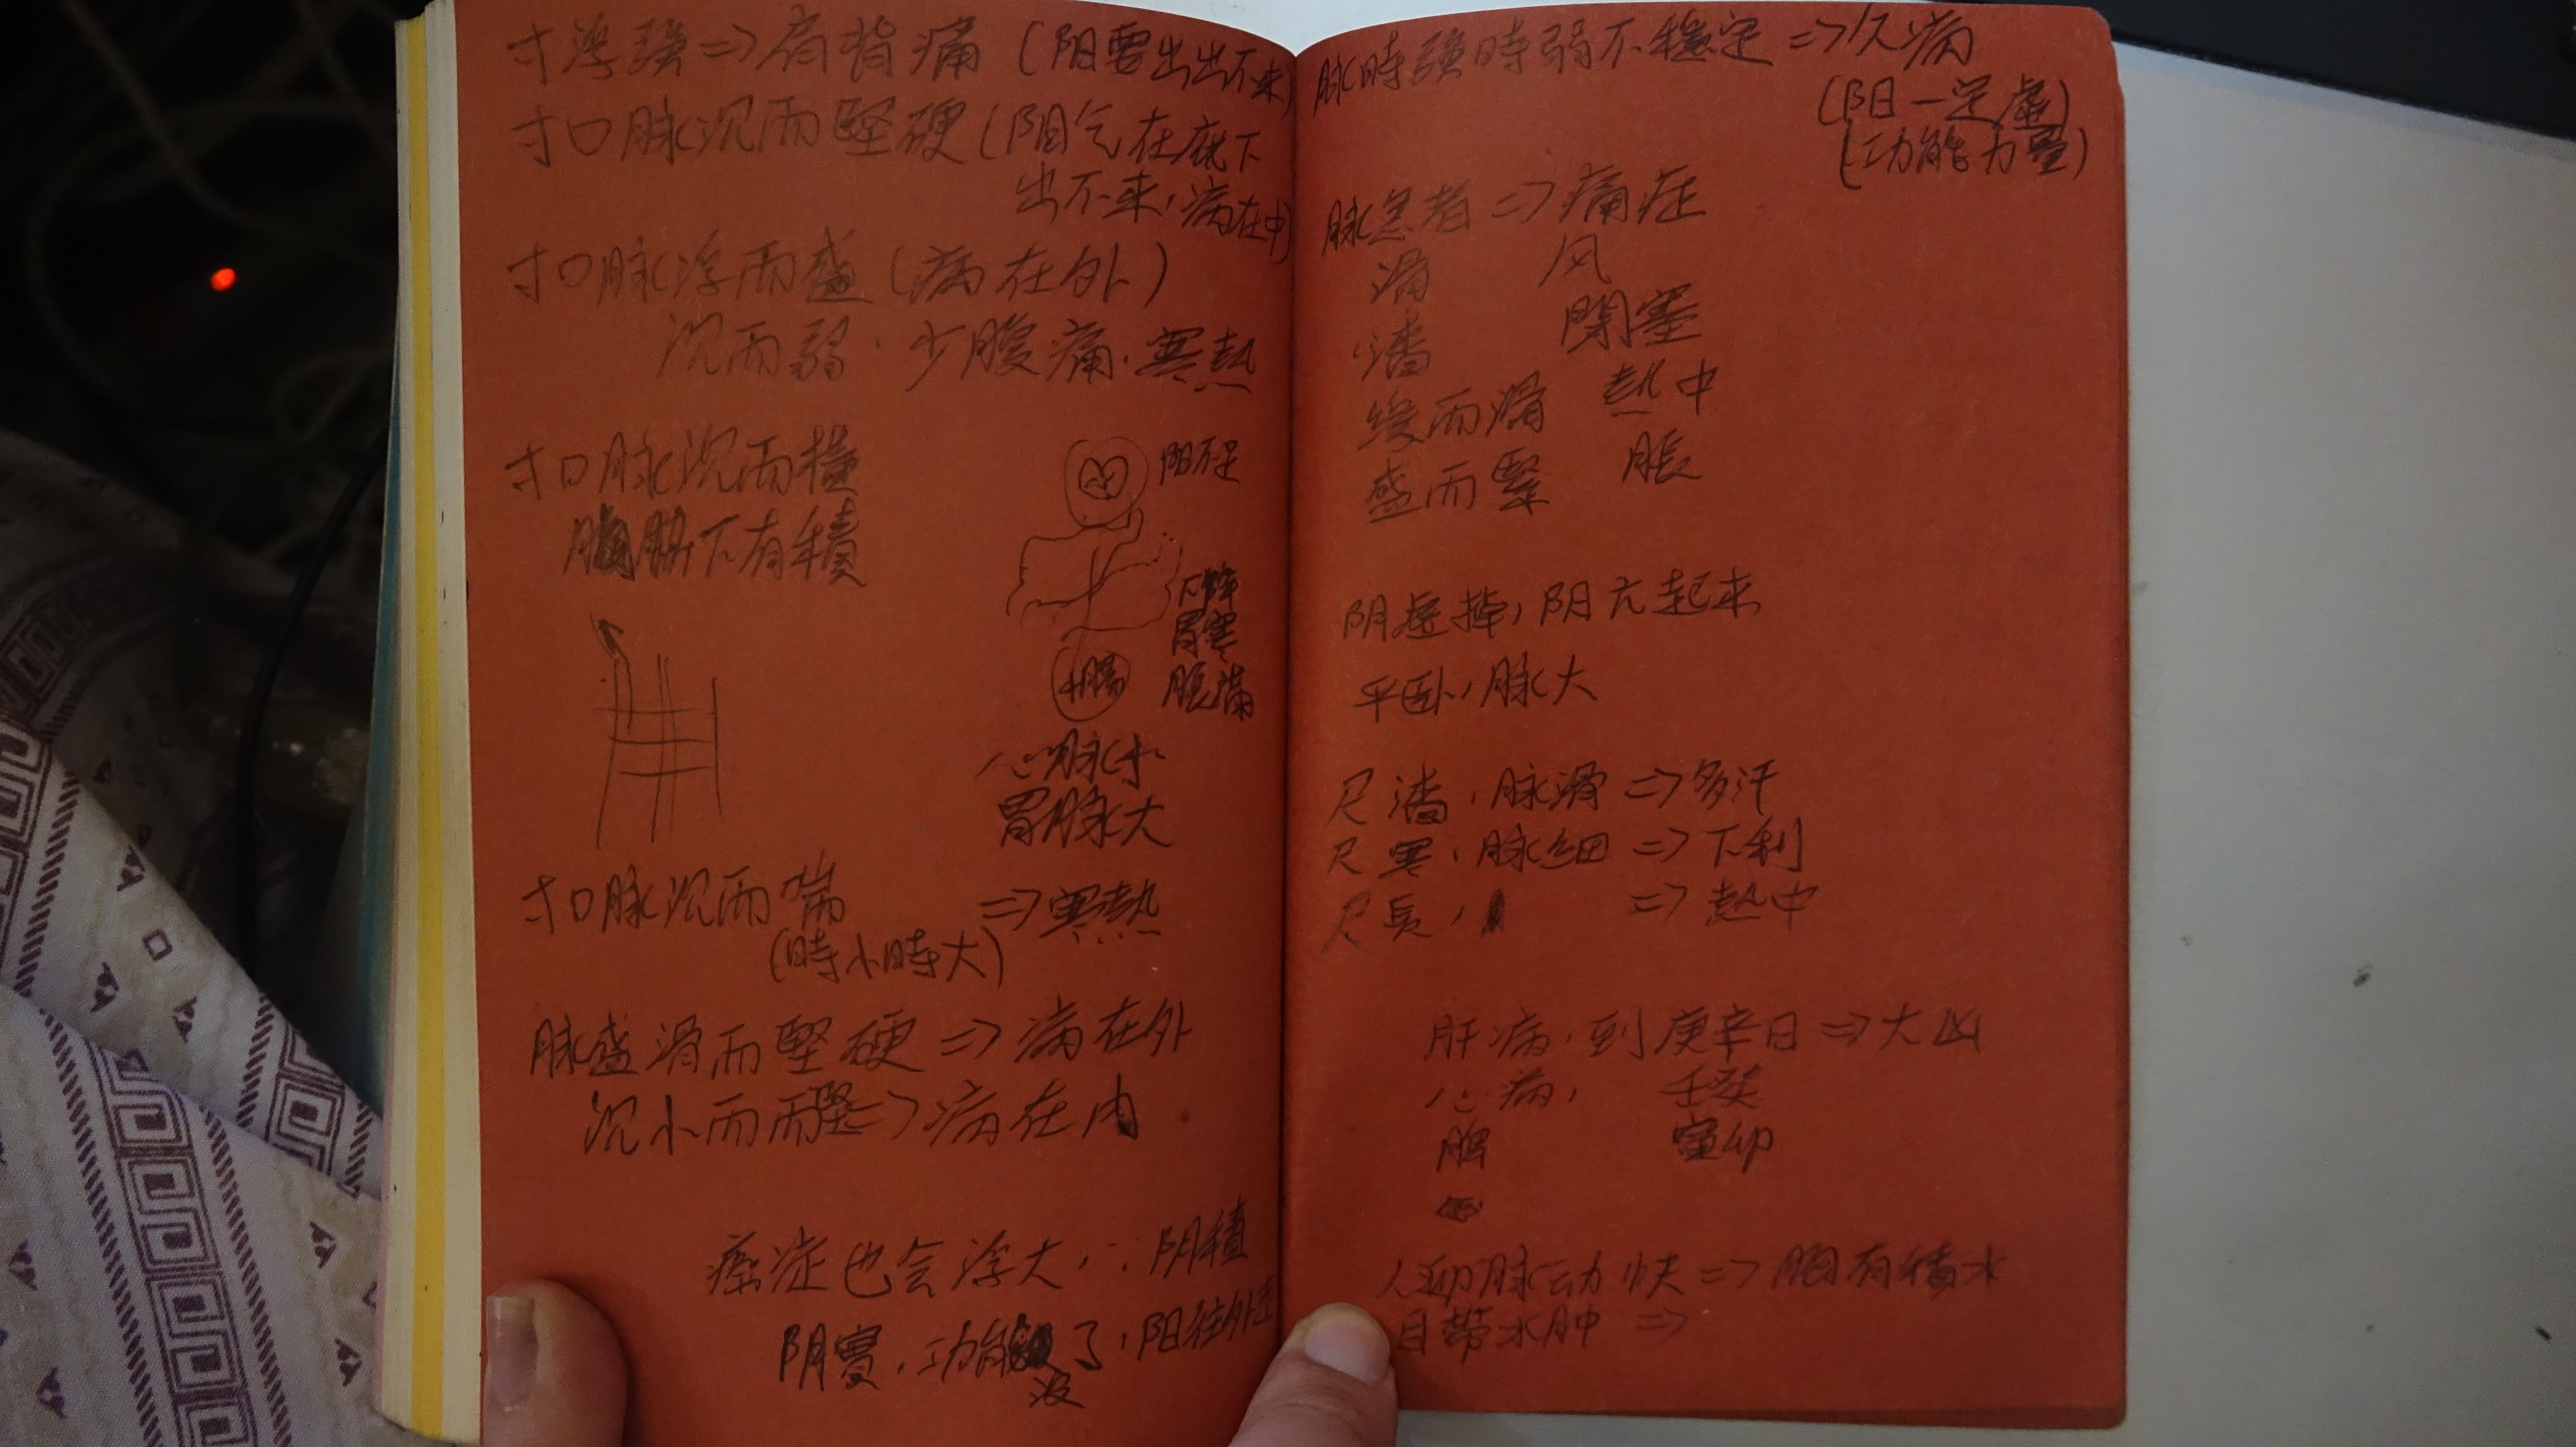 寸浮強=>肩背痛(阳要出出不来)
寸口脉沉而堅硬(阳气在底下
出不来,病在中)
寸口脉浮而盛(病在外)
沉而弱,少腹痛,寒熱
寸口脉沉而橫
脇下有積
阳不足
胃寒
腹滿
小腸
心脉小
胃脉大
寸口脉沉而喘 =>寒熱
(時小時大)
脉盛滑而堅硬=>病在外
沉小而而堅=>病在内
癌症也会浮大,∵阴積
阴實,功能没了,阳往外走
脉時強時弱不穩定=>久病
(阳一定虛)
(功能力量)
脉急者=>痛症
滑 风
濇 閉塞
緩而滑 熱中
盛而緊 脹
阴虛掉,阳亢起来
平卧,脉大
尺濇,脉滑=>多汗
尺寒,脉細=>下利
尺長, =>熱中
肝病,到庚辛日=>大凶
心病, 壬癸
脾 寅卯
人迎脉动快=>胸有積水
目帶水肿=>